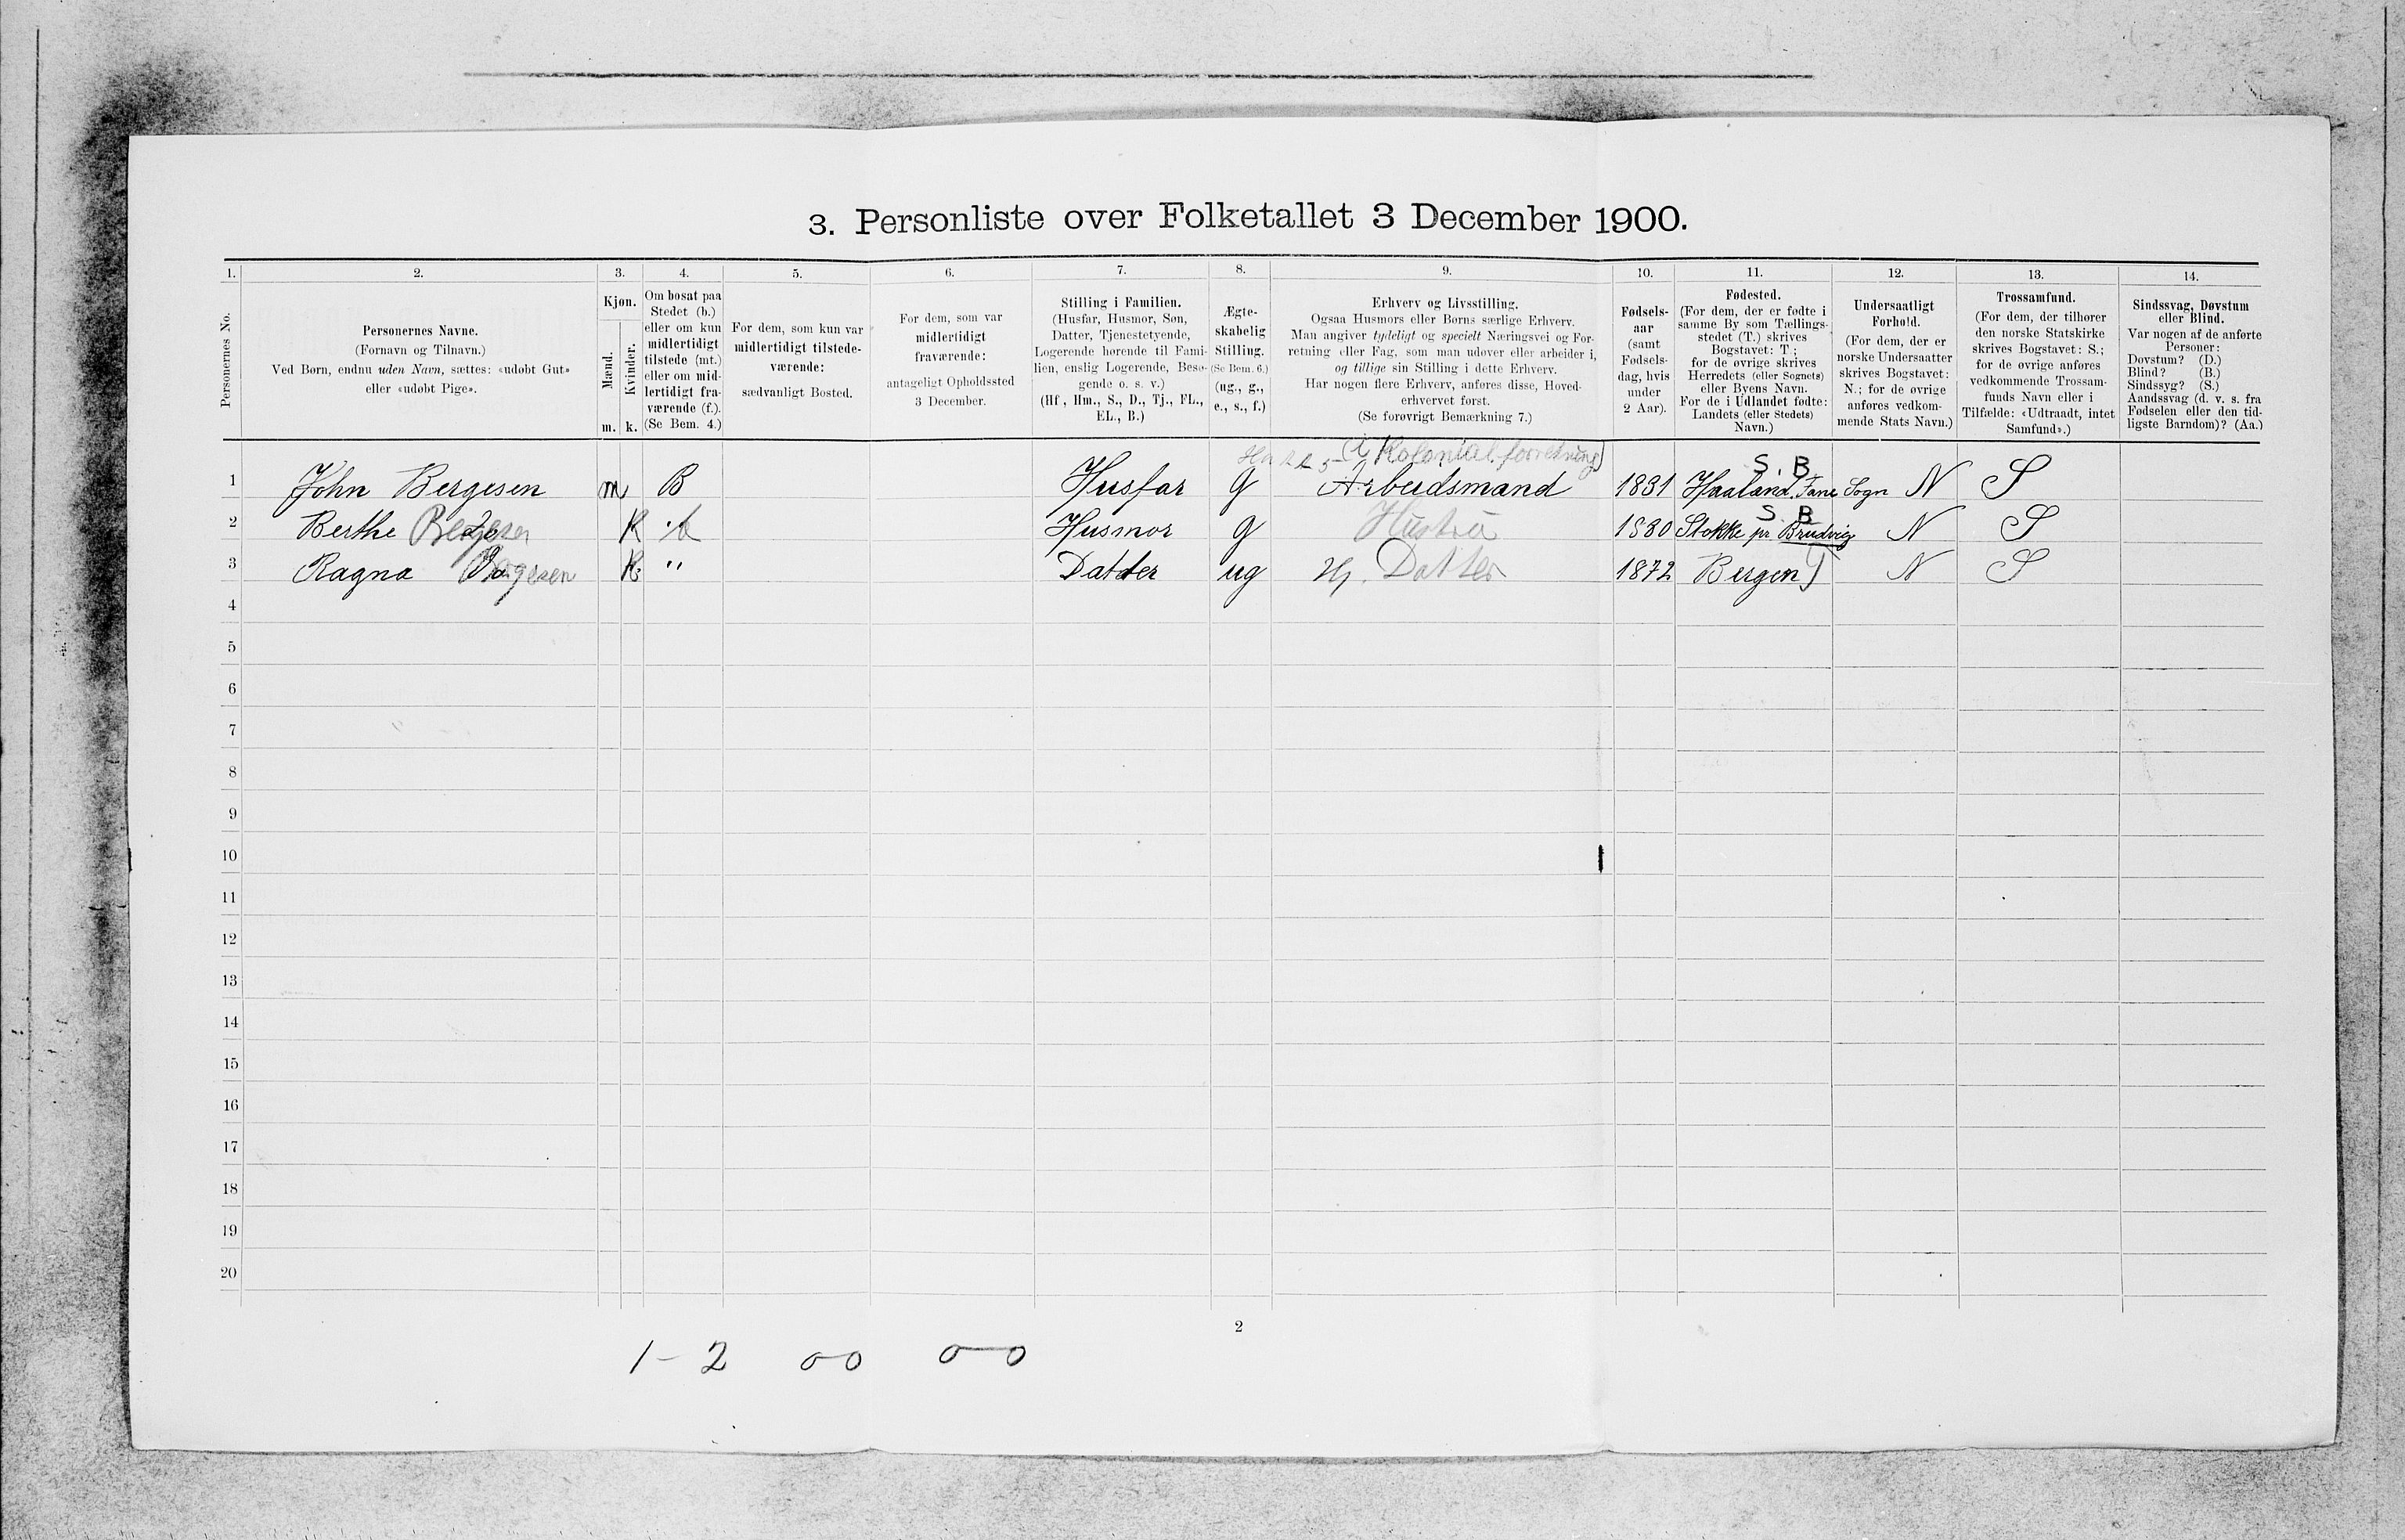 3. Personliste over Folketallet 3 December 1900.
1. 2. 3. 4. 5. 6. 7. 8. 9. 10. 11. 12. 13. 14.
Personernes No.
Personernes Navne.
(Fornavn og Tilnavn.)
Ved Børn, endnu uden Navn, sættes: «udøbt Gut»
eller «udøbt Pige».
Kjøn.
Mænd.
Kvinder.
m. k.
Om bosat paa
Stedet (b.)
eller om kun
midlertidigt
tilstede (mt.)
eller om mid-
lertidigt fra-
værende (f.).
(Se Bem. 4.)
For dem, som kun var
midlertidigt tilstede-
værende:
sædvanligt Bosted.
For dem, som var
midlertidigt
fraværende:
antageligt Opholdssted
3 December.
Stilling i Familien.
(Husfar, Husmor, Søn,
Datter, Tjenestetyende,
Logerende hørende til Fami-
lien, enslig Logerende, Besø-
gende o. s. v.)
(Hf., Hm., S., D., Tj., FL.,
EL., B.)
Ægte-
skabelig
Stilling.
(Se Bem. 6.)
(ug., g.,
e., s., f.)
Erhverv og Livsstilling.
Ogsaa Husmors eller Børns særlige Erhverv.
Man angiver tydeligt og specielt Næringsvei og For-
retning eller Fag, som man udøver eller arbeider i,
og tillige sin Stilling i dette Erhverv.
Har nogen flere Erhverv, anføres disse, Hoved-
erhvervet først.
(Se forøvrigt Bemærkning 7.)
Fødsels-
aar
(samt
Fødsels-
dag, hvis
under
2 Aar).
Fødested.
(For dem, der er fødte i
samme By som Tællings-
stedet (T.) skrives
Bogstavet: T;
for de øvrige skrives
Herredets (eller Sognets)
eller Byens Navn.
For de i Udlandet fødte:
Landets (eller Stedets)
Navn.)
Undersaatligt
Forhold.
(For dem, der er
norske Undersaatter
skrives Bogstavet:
N.; for de øvrige
anføres vedkom-
mende Stats Navn.)
Trossamfund.
(For dem, der tilhører
den norske Statskirke
skrives Bogstavet: S.;
for de øvrige anføres
vedkommende Trossam-
funds Navn eller i
Tilfælde: «Udtraadt, intet
Samfund».)
Sindssvag, Døvstum
eller Blind.
Var nogen af de anførte
Personer:
Døvstum? (D.)
Blind? (B.)
Sindssyg? (S.)
Aandssvag (d. v. s. fra
Fødselen eller den tid-
ligste Barndom)? (Aa.)
(i Kolonial.forretning)
S. B
1 John Bergesen m B Husfar g Arbeidsmand 1831 Haaland, Fane Sogn N S
S B
2 Berthe Bergesen K Husmor g Hustru 1830 Stokke pr Brudvig N S
3 Ragna Bergesen K " Datter ug Hj. Datter 1872 Bergen T N S
4
5
6
7
8
9
10
11
12
13
14
15
16
17
18
19
20
2
1-2 00 0-0